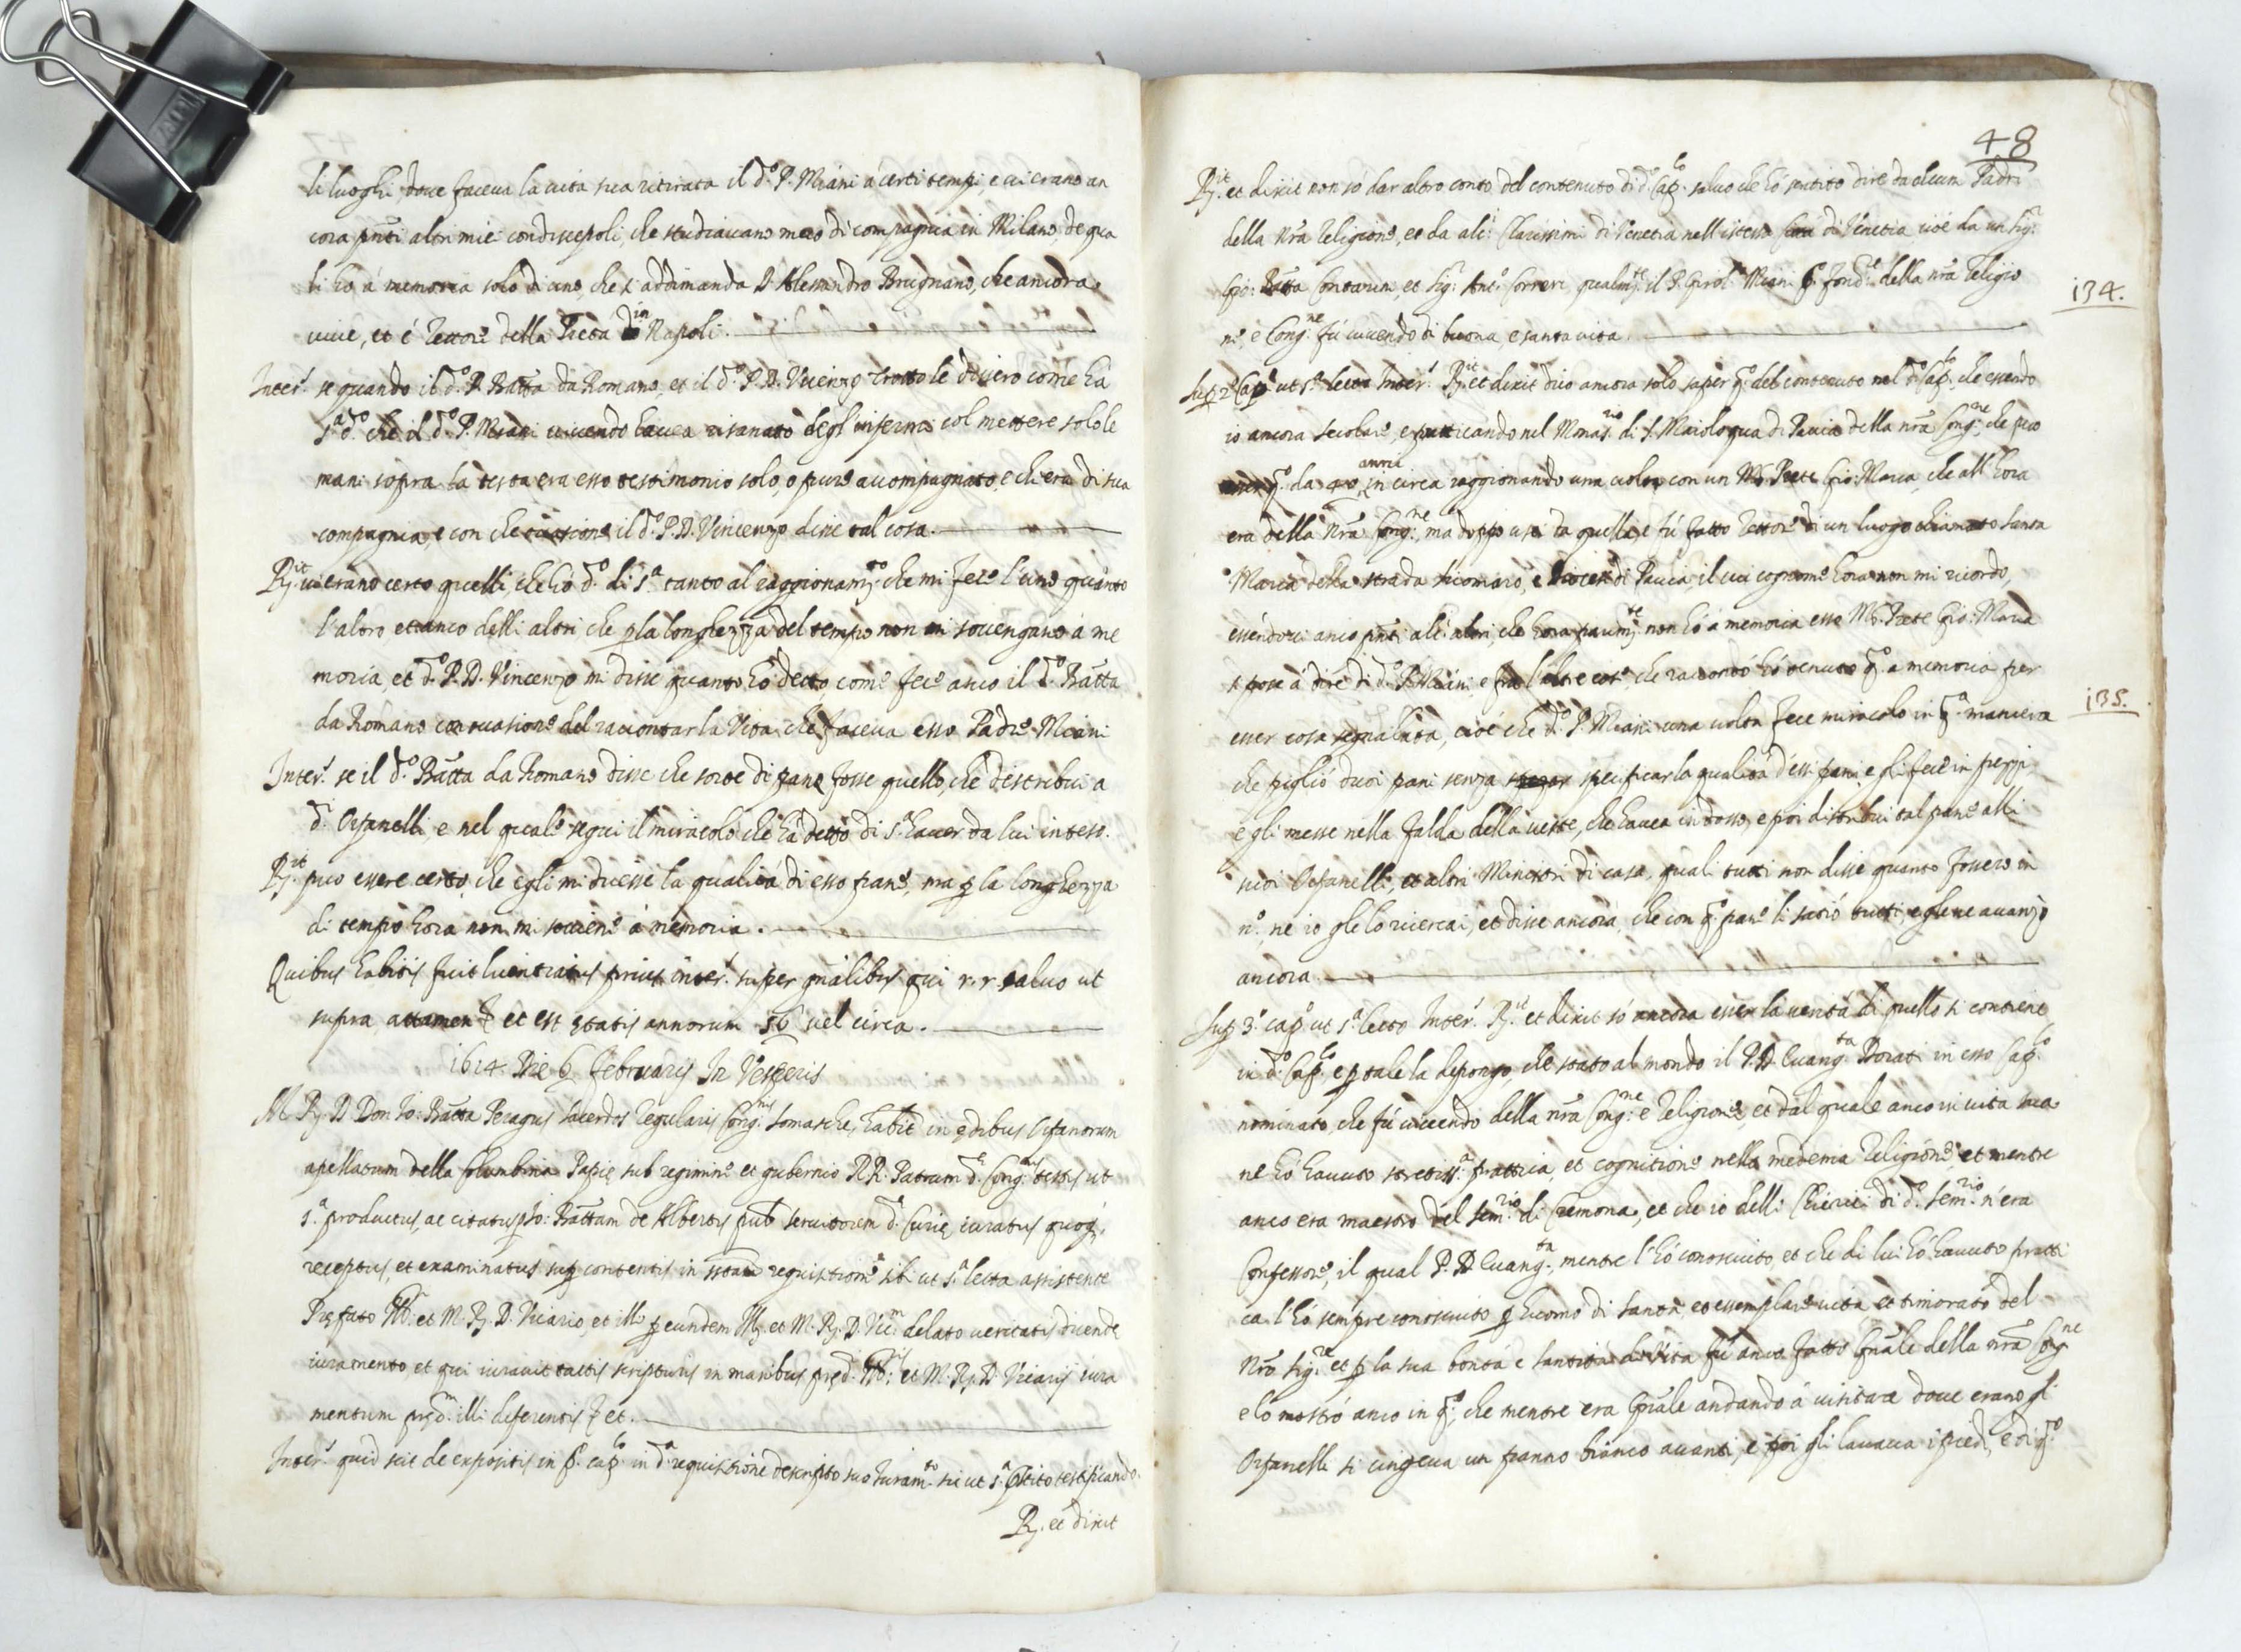 li luoghi dove faceva la vita sua ritirata il d.º P. Miani à certi tempi, e vi erano an
cora pnti altri miei condiscepoli, che studiavano meco di compagnia in Milano, de qua
li hò à memoria solo di uno, che s'addimanda D. Alessandro Brugnano, che ancora
vive, et è Rettore della Pietà in Napoli.
Inter.s se quando il d.º P. Batta da Romano, et il d.º P. D. Vicenzo Trotto le dissero come hà
s.ª d.º che il d.º P. Miani vivendo havea risanato degl'infermi col mettere solo le
mani sopra la testa era esso testimonio solo, o pure accompagnato, e chi era di sua
compagnia, e con che il d.º P. D. Vincenzo disse tal cosa.
R.it v'erano certo quelli, che hò d.º di s.ª tanto al raggionam.to che mi fece l'uno quanto
l'altro, et anco delli altri che p la longhezza del tempo non mi sovengano à me
moria, et d.º P. D. Vincenzo mi disse quanto hò detto come fece anco il d.º Batta
da Romano con occasione del raccontar la Vita, che faceva esso Padre Miani
Inter.s se il d.º Batta da Romano disse che sorte di pane fosse quello, che distribui a
d.i Orfanelli, e nel quale segui il miracolo che hà detto di s.ª haver da lui inteso.
R.it puo essere certo, che egli mi dicesse la qualità di esso pane, ma p la longhezza
di tempo hora non mi soviene à memoria.
Quibus habitis fuit licentiatus prius inter.s super gnalibus qui r. r. salvo ut
supra attamen et est etatis annorum 56 vel circa.
1614 Die 6 Februarij In Vesperis
M. R. D. Don Io: Batta Peragus sacerdos Regularis Cong.nis Somasche, habit in edibus Orfanorum
apellatum della Colombina Papie sub regimine et gubernio RR. Patrum d.e Cong.nis testis ut
s.ª productus, ac citatus p Io: Battam de Albertis pub servitorem d. Curie iuratus quoq
receptus, et examinatus sup contentis in requisitione sibi ut s.ª lecta assistente
Prefato et M. R. D. Vicario, et illi p eundem Ill. et M. R. D. Vic.m delato veritatis dicende
iuramento, et qui iuravit tactis scripturis in manibus pred. et M. R. D. Vicarij iura
mentum pred.m illi deferentis et.
Inter.s quid scit de expositis in p.º cap.lo in d.ª requisitione descripto suo iuram.to sic ut s.ª testificando.
R. et dixit
48
R.it et dixit non sò dar altro conto del contenuto di d.º Cap.lo salvo che hò sentito dire da alcuni Padri
della nra Religione, et da alc.i Clarissimi di Venetia nell'istessa Città di Venetia cioè da un Sig.r
Gio: Batta Contarin, et Sig.r Ant.º Correr, qualm.te il P. Girol.º Miani p.º Fond.re della nra Religio
ne, e Cong.ne fù vivendo di buona, e santa vita.
134.
Sup 2.º Cap.º ut s.ª lecto Inter.s R.it et dixit dico ancora solo saper q.º del contenuto nel d.º Cap.lo, che essendo
io ancora secolare, e pratticando nel Monas.rio di S. Maiolo qua di Pavia della nra Cong.ne, che puo
esser q.º da 40 anni in circa raggionando una volta con un M.r Prete Gio: Maria, che all'hora
era della nra Cong.ne, ma doppo usci da quella, e fù fatto Rettore di un luogo chiamato Santa
Maria della strada di Pavia, il cui cognome hora non mi ricordo,
essendovi anco pnti alc.i altri, che hora parim.te non hò a memoria esso M.r Prete Gio: Maria
si pose à dire di d.º P. Miani, e fra l'altre cose, che raccontò hò tenuto q.º a memoria per
135.
esser cosa segnalata, cioè che d.º P. Miani una volta fece miracolo in q.ª maniera
che pigliò duoi pani senza specificar la qualità d'essi pani, e gli fece in pezzi,
e gli messe nella falda della veste, che havea indosso, e poi distribui tal pane alli
suoi Orfanelli, et altri Ministri di casa, quali tutti non disse quanto fossero in
n.º, ne io gle lo ricercai, et disse ancora, che con q.º pane li satiò tutti, e glene avanzò
ancora.
Sup 3.º cap.º ut s.ª lecto Inter.s R.it et dixit sò ancora esser la verità di quello si contiene
in d.º Cap.lo, e p tale la depongo, che stato al mondo il P. D. Evang.ta Dorati in esso Cap.lo
nominato, che fù vivendo della nra Cong.ne e Religione, et dal quale anco in vita sua
ne hò havuto strettiss.ª prattica, et cognitione nella medema Religione, et mentre
anco era maestro del Sem.rio di Cremona, et che io delli Chierici di d.º Sem.rio n'era
Confessore, il qual P. D. Evang.ta, mentre l'hò conosciuto, et che di lui hò havuto pratti
ca l'hò sempre conosciuto p huomo di santa, et essemplare vita et timorato del
Nro Sig.re et p la sua bontà e santità di Vita fù anco fatto Gnale della nra Cong.ne
e lo mostrò anco in q.º, che mentre era Gnale andando à visitare dove erano gl'
Orfanelli si cingeva un panno bianco avanti, e poi gli lavava i piedi, e di q.º